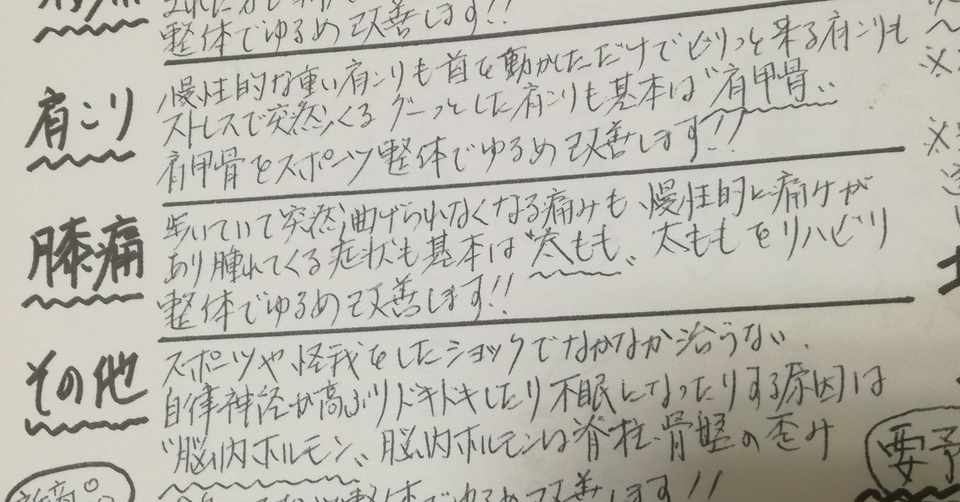 整体でゆるめ改善します!!
肩こり
慢性的な重い肩こりも首を動かしただけでビリっと来る肩こりも
ストレスで突然くるグーっとした肩こりも基本は"肩甲骨"
肩甲骨をスポーツ整体でゆるめ改善します!!
膝痛
歩いていて突然曲げられなくなる痛みも、慢性的に痛みが
あり腫れてくる症状も基本は"太もも"太ももをリハビリ
整体でゆるめ改善します!!
その他
スポーツや怪我をしたショックでなかなか治らない、
自律神経が高ぶりドキドキしたり不眠になったりする原因は
"脳内ホルモン"脳内ホルモンは脊柱、骨盤の歪み
整体でゆるめ改善します!!
要予